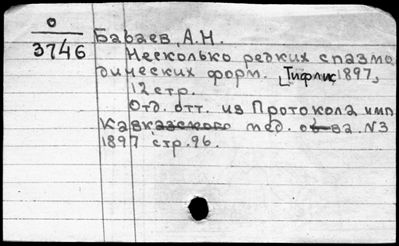 0
3746
Бабаев, А.Н.
Несколько редких спазмо
дических форм. [Тифлис, 1897,
12 стр.
Отд. отт. из Протокола имп.
Кавказского мед. о-ва. №3
1897 стр. 96.